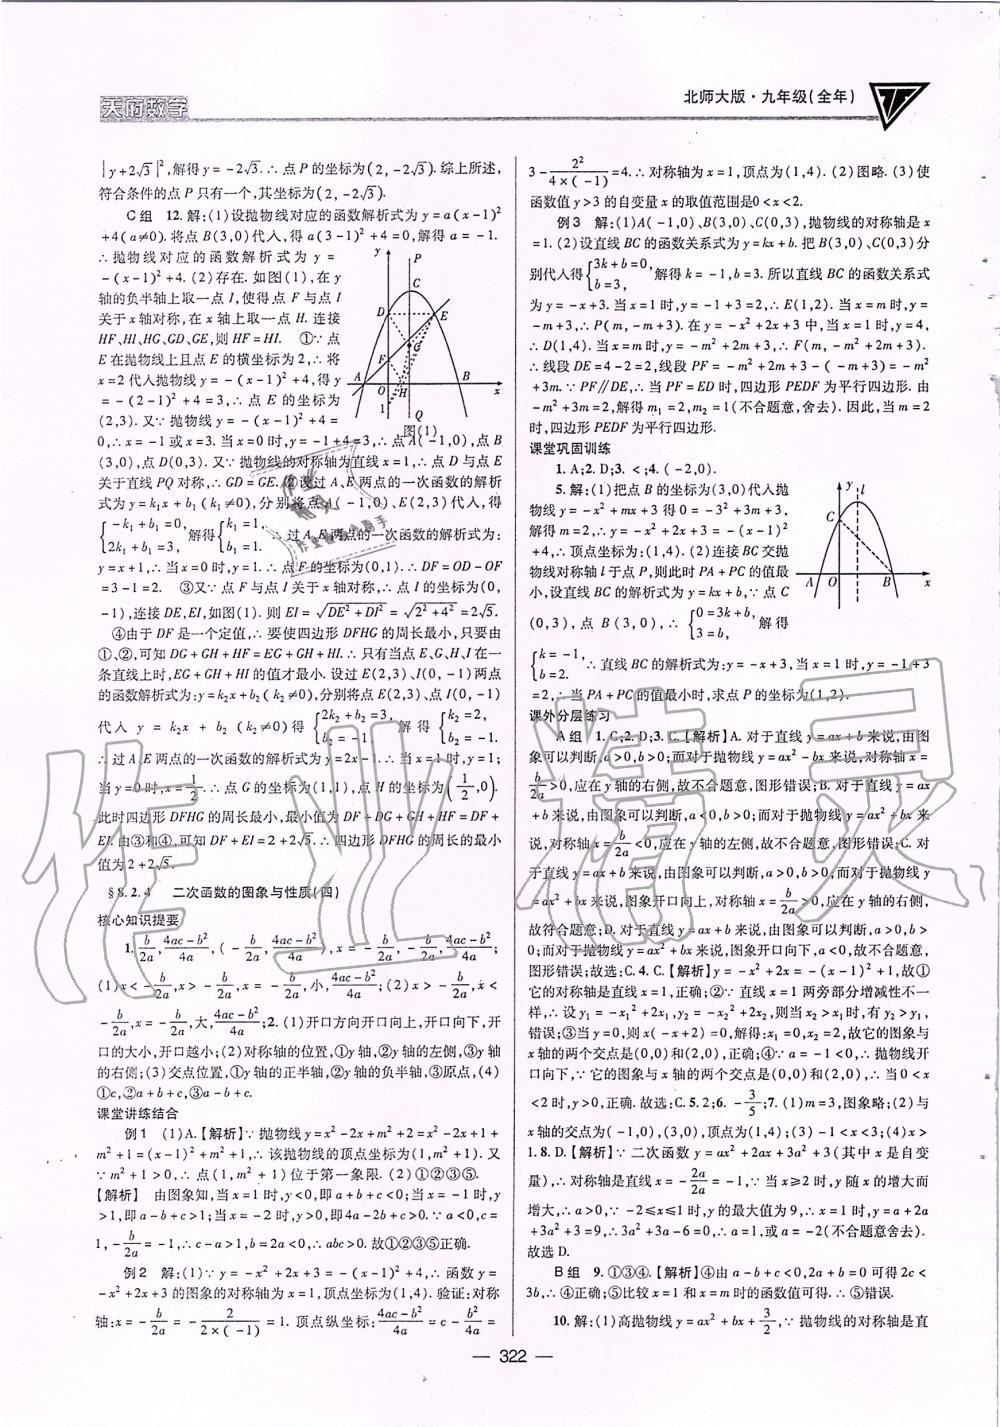 天府数学
北师大版·九年级(全年)
|y+2√3|²,解得y=-2√3.∴点P的坐标为(2,-2√3).综上所述,
符合条件的点P只有一个,其坐标为(2,-2√3).
C组 12.解:(1)设抛物线对应的函数解析式为y=a(x-1)²
+4(a≠0).将点B(3,0)代入,得a(3-1)²+4=0,解得a=-1.
∴抛物线对应的函数解析式为y=
-(x-1)²+4.(2)存在.如图(1),在y
轴的负半轴上取一点I,使得点F与点I
关于x轴对称,在x轴上取一点H.连接
HF,HI,HG,GD,GE,则HF=HI. ①∵点
E在抛物线上且点E的横坐标为2,∴将
x=2代入抛物线y=-(x-1)²+4,得y=
-(2-1)²+4=3,∴点E的坐标为
(2,3).又∵抛物线y=-(x-1)²+4=
图(1)
0,∴x=-1或x=3.当x=0时,y=-1+4=3,∴点A(-1,0),点B
(3,0),点D(0,3).又∵抛物线的对称轴为直线x=1,∴点D与点E
关于直线PQ对称,∴GD=GE.②设过A,E两点的一次函数的解析
式为y=k₁x+b₁(k₁≠0),分别将点A(-1,0)、E(2,3)代入,得
{-k₁+b₁=0, 2k₁+b₁=3, 解得{k₁=1, b₁=1. ∴过A,E两点的一次函数的解析式为:
y=x+1,∴当x=0时,y=1.∴点F的坐标为(0,1).∴DF=OD-OF
=3-1=2. ③又∵点F与点I关于x轴对称,∴点I的坐标为(0,
-1),连接DE,EI,如图(1).则EI=√(DE²+DI²)=√(2²+4²)=2√5.
④由于DF是一个定值,∴要使四边形DFHG的周长最小,只要由
①、②,可知DG+GH+HF=EG+GH+HI.∴只有当点E、G、H、I在一
条直线上时,EG+GH+HI的值才最小.设过E(2,3)、I(0,-1)两点
的函数解析式为y=k₂x+b₂(k₂≠0),分别将点E(2,3)、点I(0,-1)
代入y=k₂x+b₂(k₂≠0)得{2k₂+b₂=3, b₂=-1 解得{k₂=2, b₂=-1.
∴过A、E两点的一次函数的解析式为y=2x-1.∴当x=1时,y=1;
当y=0时,x=1/2.∴点G的坐标为(1,1),点H的坐标为(1/2,0).
此时四边形DFHG的周长最小,最小值为DF+DG+GH+HF=DF+
EI.由③和④,可知DF+EI=2+2√5.∴四边形DFHG的周长的最小
值为2+2√5.
§8.2.4 二次函数的图象与性质(四)
核心知识提要
1.b/2a,(4ac-b²)/4a,(-b/2a,(4ac-b²)/4a),x=-b/2a,-b/2a,(4ac-b²)/4a;
(1)x<-b/2a,x>-b/2a,x=-b/2a,小,(4ac-b²)/4a;(2)x>-b/2a,x<
-b/2a,x=-b/2a,大,(4ac-b²)/4a;2.(1)开口方向开口向上,开口向下,开
口的大小,开口越小;(2)对称轴的位置,①y轴,②y轴的左侧,③y轴
的右侧;(3)交点位置,①y轴的正半轴,②y轴的负半轴,③原点,(4)
①c,②a+b+c,③a-b+c.
课堂讲练结合
例1 (1)A.【解析】∵抛物线y=x²-2x+m²+2=x²-2x+1+
m²+1=(x-1)²+m²+1,∴该抛物线的顶点坐标为(1,m²+1).又
∵m²+1>0,∴点(1,m²+1)位于第一象限.(2)①②③⑤.
【解析】 由图象知,当x=1时,y<1,即a+b+c<0;当x=-1时,y
>1,即a-b+c>1;当x=-2时,y>0,即4a-2b+c>0.∵a<0,c=1,
-b/2a=-1,∴b=2a<0,∴abc>0,c-a>0.故①②③⑤正确.
例2 解:(1)∵y=-x²+2x+3=-(x-1)²+4,∴函数y=
-x²+2x+3的图象的对称轴为x=1,顶点坐标为(1,4).验证:对称
轴:x=-b/2a=-2/(2×(-1))=1.顶点纵坐标:(4ac-b²)/4a=c-b²/4a=
3-2²/(4×(-1))=4.∴对称轴为x=1,顶点为(1,4).(2)图略.(3)使
函数值y>3的自变量x的取值范围是0<x<2.
例3 解:(1)A(-1,0)、B(3,0)、C(0,3),抛物线的对称轴是x
=1.(2)设直线BC的函数关系式为y=kx+b.把B(3,0)、C(0,3)分
别代入得{3k+b=0, b=3, 解得k=-1,b=3.所以直线BC的函数关系式
为y=-x+3.当x=1时,y=-1+3=2,∴E(1,2).当x=m时,y=
-m+3,∴P(m,-m+3).在y=-x²+2x+3中,当x=1时,y=4,
∴D(1,4).当x=m时,y=-m²+2m+3,∴F(m,-m²+2m+3).
∴线段DE=4-2=2,线段PF=-m²+2m+3-(-m+3)=-m²
+3m.∵PF∥DE,∴当PF=ED时,四边形PEDF为平行四边形.由
-m²+3m=2,解得m₁=2,m₂=1(不合题意,舍去).因此,当m=2
时,四边形PEDF为平行四边形.
课堂巩固训练
1.A;2.D;3.<;4.(-2,0).
5.解:(1)把点B的坐标为(3,0)代入抛
物线y=-x²+mx+3得0=-3²+3m+3,
解得m=2,∴y=-x²+2x+3=-(x-1)²
+4,∴顶点坐标为:(1,4).(2)连接BC交抛
物线对称轴l于点P,则此时PA+PC的值最
小,设直线BC的解析式为y=kx+b,∵点C
(0,3),点B(3,0),∴{0=3k+b, 3=b, 解得
{k=-1, b=3. ∴直线BC的解析式为:y=-x+3,当x=1时,y=-1+3
=2,∴当PA+PC的值最小时,求点P的坐标为(1,2).
课外分层练习
A组 1.C;2.D;3.C.【解析】A.对于直线y=ax+b来说,由图
象可以判断,a>0,b>0;而对于抛物线y=ax²-bx来说,对称轴x=
b/2a>0,应在y轴的右侧,故不合题意,图形错误;B.对于直线y=ax
+b来说,由图象可以判断,a<0,b>0;而对于抛物线y=ax²-bx来
说,对称轴x=b/2a<0,应在y轴的左侧,故不合题意,图形错误;C.对
于直线y=ax+b来说,由图象可以判断,a>0,b>0;而对于抛物线y
=ax²-bx来说,图象开口向上,对称轴x=b/2a>0,应在y轴的右侧,
故符合题意;D.对于直线y=ax+b来说,由图象可以判断,a>0,b>
0;而对于抛物线y=ax²+bx来说,图象开口向下,a<0,故不合题意,
图形错误;故选:C.4.C.【解析】y=-x²+2x=-(x-1)²+1,故①
它的对称轴是直线x=1,正确;②∵直线x=1两旁部分增减性不一
样,∴设y₁=-x₁²+2x₁,y₂=-x₂²+2x₂,则当x₂>x₁时,有y₂>y₁,
错误;③当y=0,则x(-x+2)=0,解得:x₁=0,x₂=2,故它的图象与
x轴的两个交点是(0,0)和(2,0),正确;④∵a=-1<0,∴抛物线开
口向下,∵它的图象与x轴的两个交点是(0,0)和(2,0),∴当0<x
<2时,y>0,正确.故选:C.5.2;6.-3/5;7.(1)m=3,图象略;(2)与
x轴的交点为(-1,0),(3,0),顶点为(1,4);(3)-1<x<3;(4)x>
1.8.D.【解析】∵二次函数y=ax²+2ax+3a²+3(其中x是自变
量),∴对称轴是直线x=-2a/2a=-1,∵当x≥2时,y随x的增大而
增大,∴a>0,∵-2≤x≤1时,y的最大值为9,∴x=1时,y=a+2a
+3a²+3=9,∴3a²+3a-6=0,∴a=1或a=-2(不合题意舍去).
故选D.
B组 9.①③④.【解析】④由a-b+c<0,2a+b=0可得2c<
3b,∴④正确;⑤比较x=1和x=m时的函数值可得.∴⑤错误.
10.解:(1)高抛物线y=ax²+bx+3/2,∵抛物线的对称轴是直
— 322 —